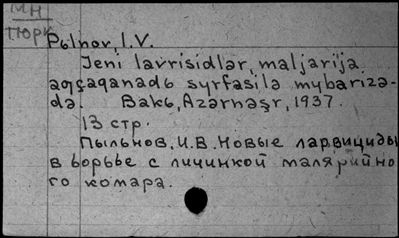 МН
ТЮРК
Pьlnov, I.V.
Jeni lavrisidlər, maljarija
aqçaqanadь syrfəsilə mybarizə-
də. Bakь, Azərnəşr, 1937.
13 стр.
Пыльнов, И.В. Новые ларвициды
в борьбе с личинкой малярийно
го комара.